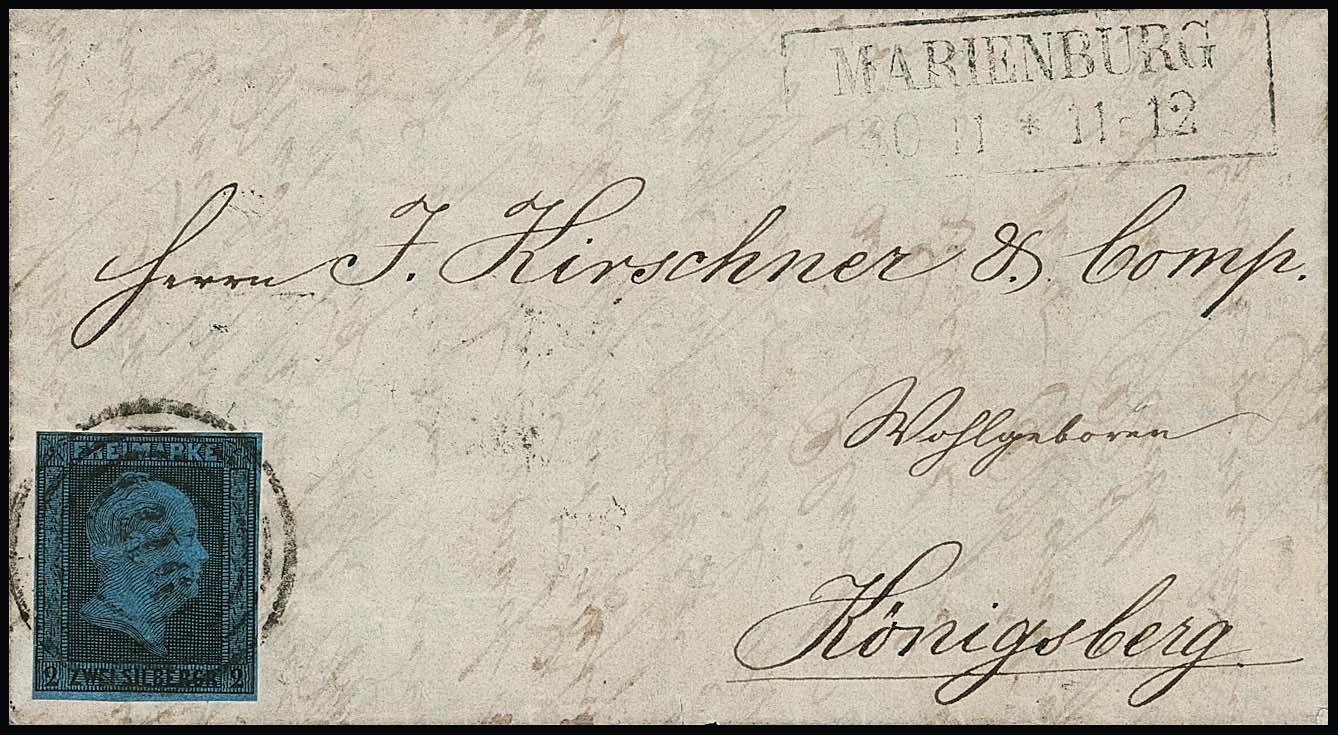 MARIENBURG
30 11 * 11-12
Herrn J. Kirschner & Comp.
Wohlgeboren
Königsberg
FREIMARKE
2 ZWEI SILBERGR 2